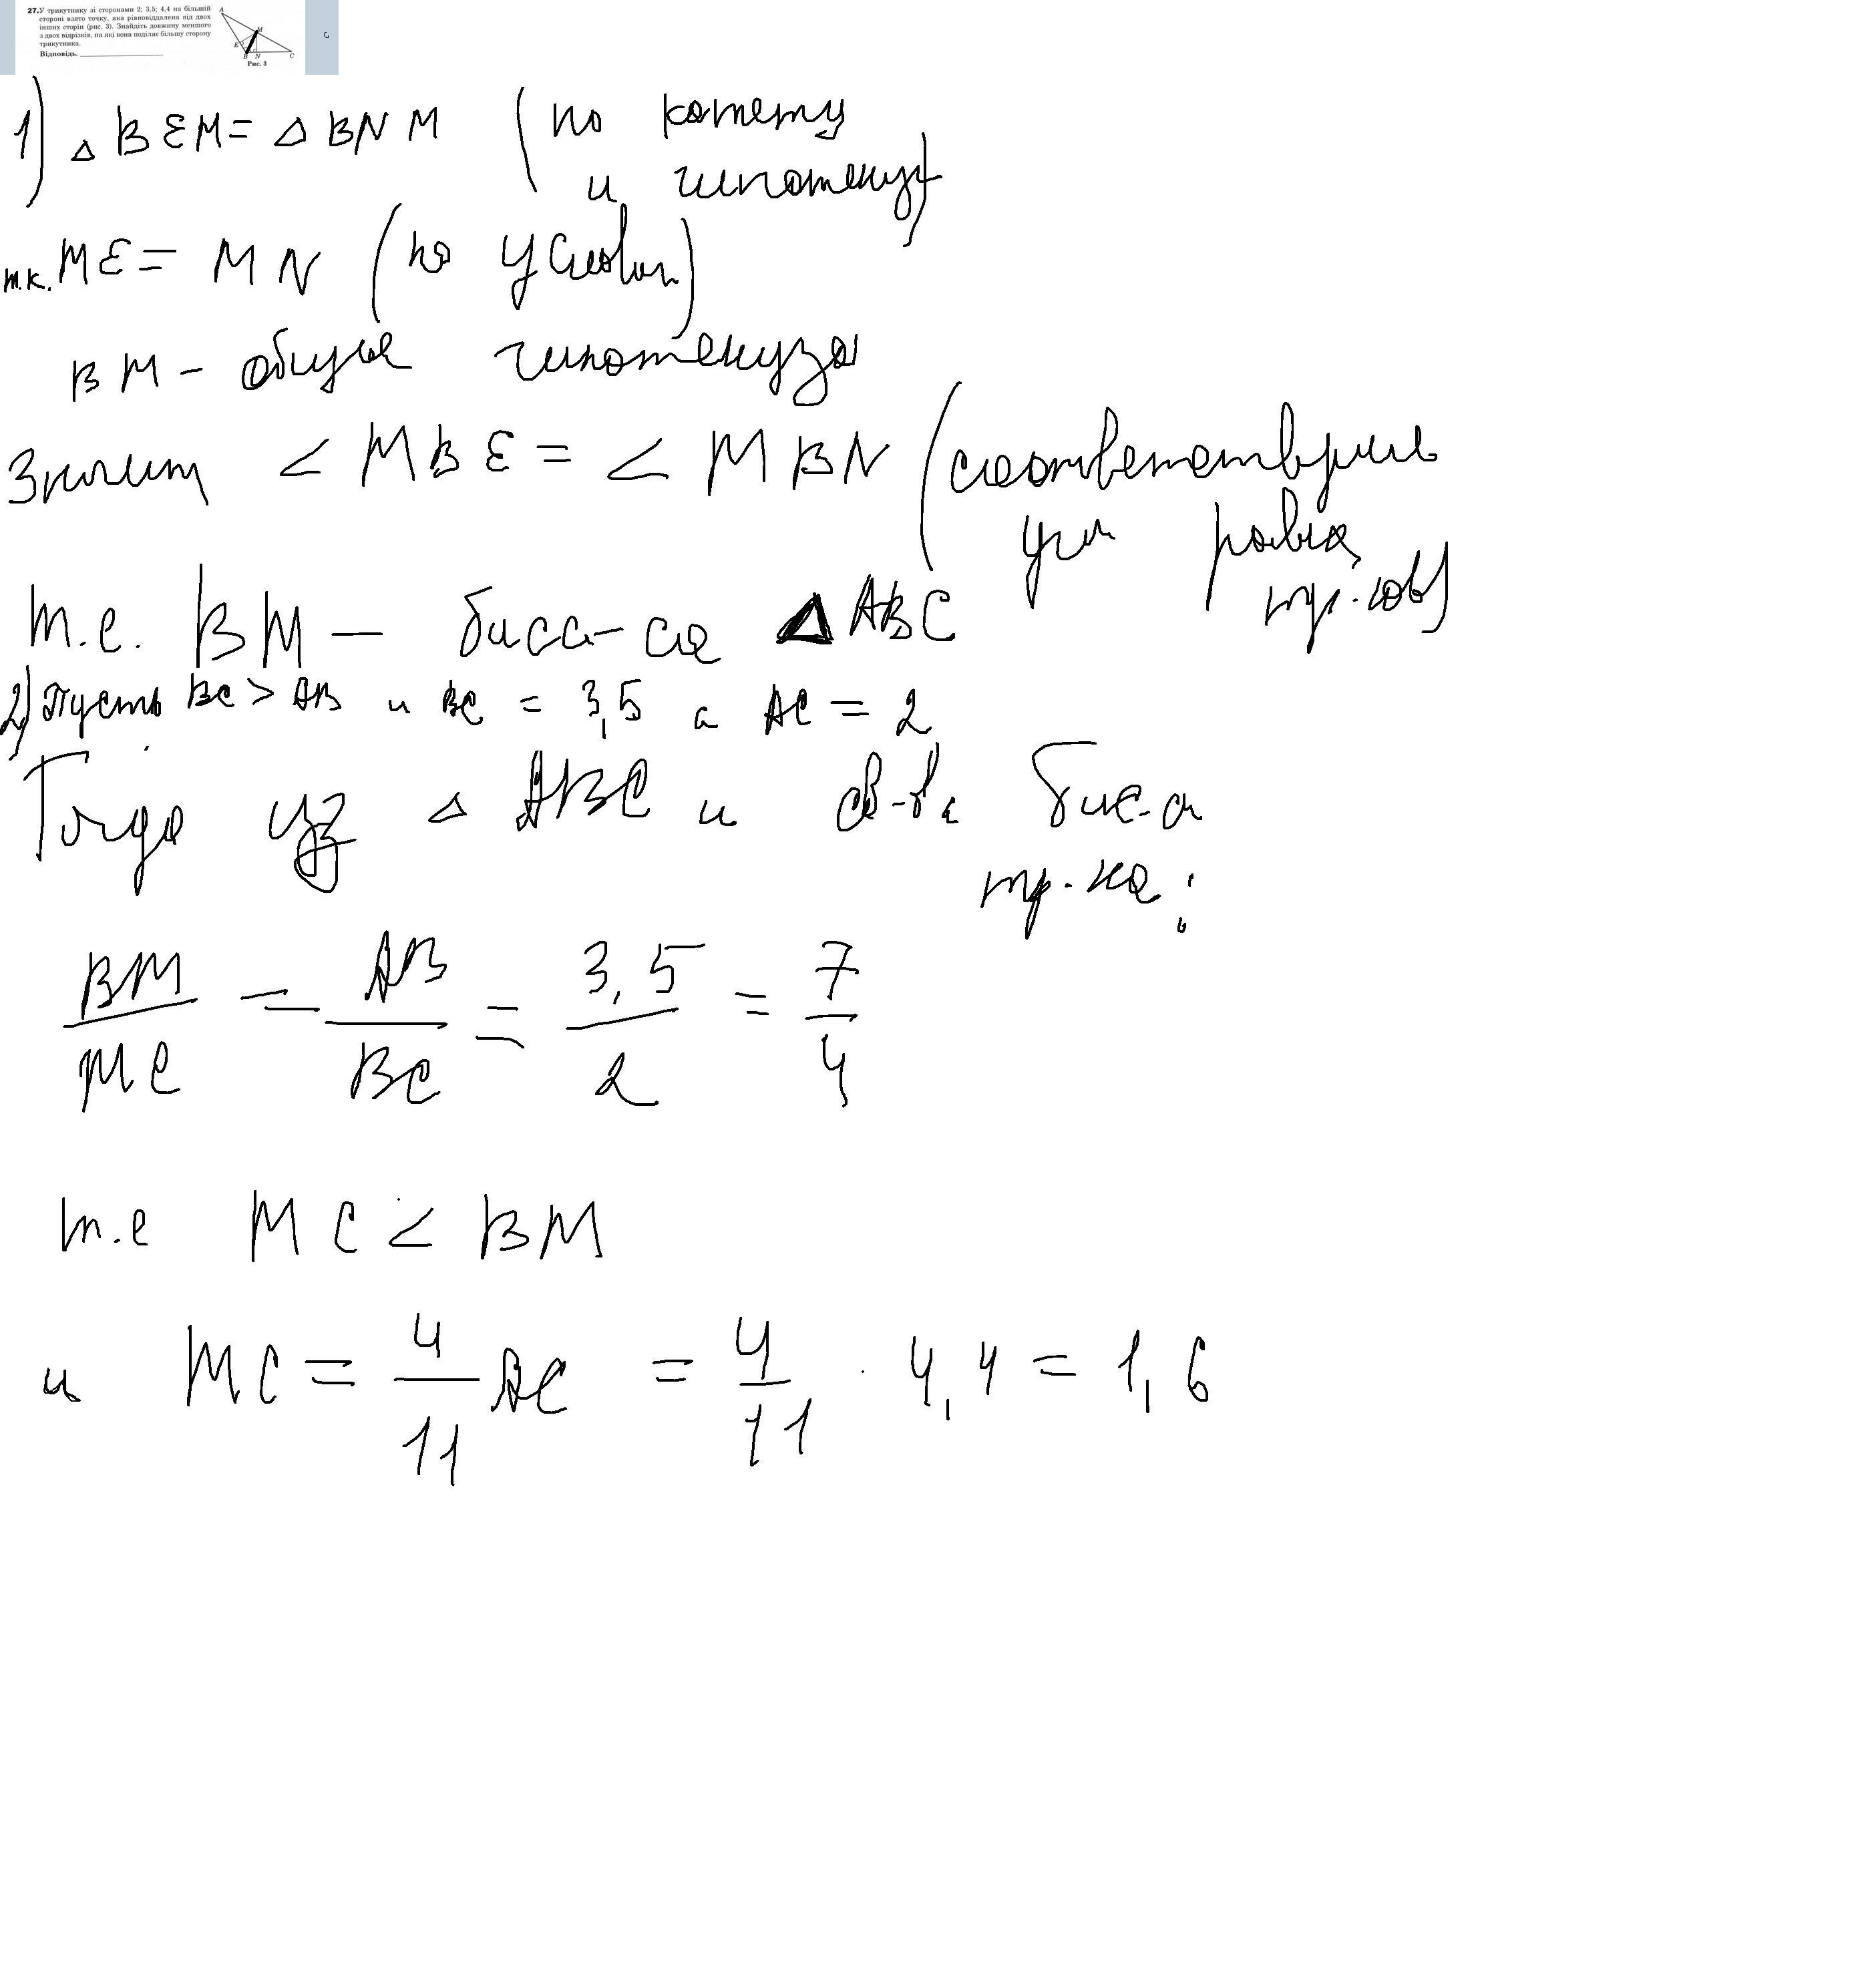 27. У трикутнику зі сторонами 2; 3,5; 4,4 на більшій
стороні взято точку, яка рівновіддалена від двох
інших сторін (рис. 3). Знайдіть довжину меншого
з двох відрізків, на які вона поділяє більшу сторону
трикутника.
Відповідь.
A
M
E
B N C
Рис. 3
c
1) △ BEM = △ BNM (по катету
и гипотенузе)
т.к. ME = MN (по условию)
BM - общая гипотенуза
Значит < MBE = < MBN (соответствующие
углы равных
тр.-ов)
т.е. BM - бисс-са △ ABC
2) Пусть BC > AB и BC = 3,5 а AC = 2
Тогда из △ ABC и св-ва бис-сы
тр-ка :
BM/MC = AB/BC = 3,5/2 = 7/4
т.е MC < BM
и MC = 4/11 AC = 4/11 · 4,4 = 1,6